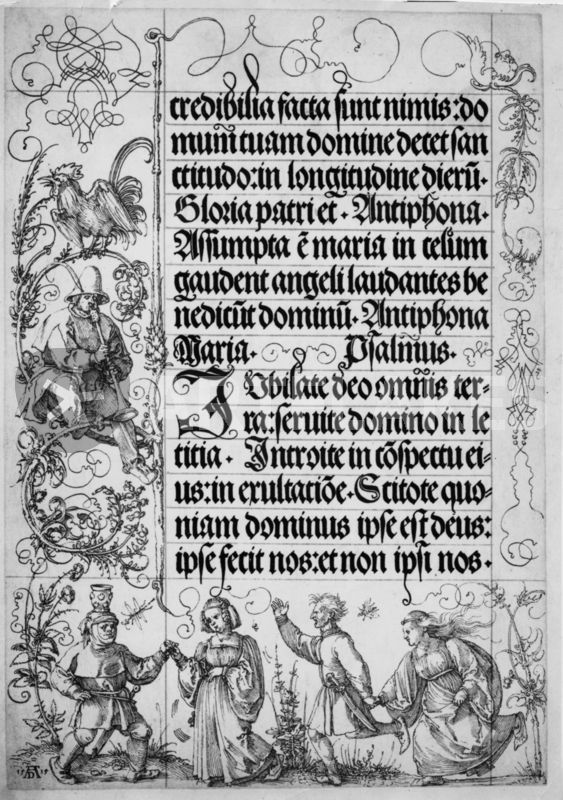 credibilia facta sunt nimis: do
mum̄ tuam domine decet san
ctitudo: in longitudine dierū.
Gloria patri et. Antiphona.
Assumpta ē maria in celum
gaudent angeli laudantes be
nedicūt dominū. Antiphona
Maria. Psalmus.
IVbilate deo omnis ter-
ra: seruite domino in le
titia. Introite in cōspectu ei-
us: in exultatiōe. Scitote quo-
niam dominus ipse est deus:
ipse fecit nos: et non ipsi nos.
15 AD 15